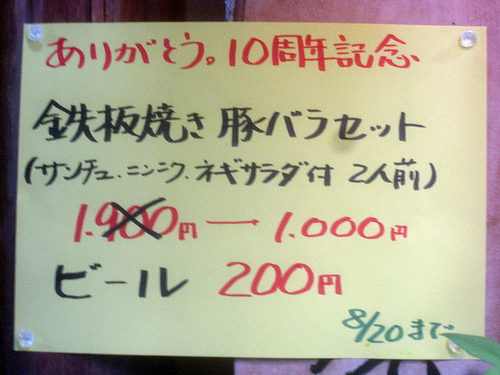 ありがとう。10周年記念
鉄板焼き豚バラセット
(サンチュ、ニンニク、ネギサラダ付 2人前)
1.900円→1.000円
ビール 200円
8/20まで